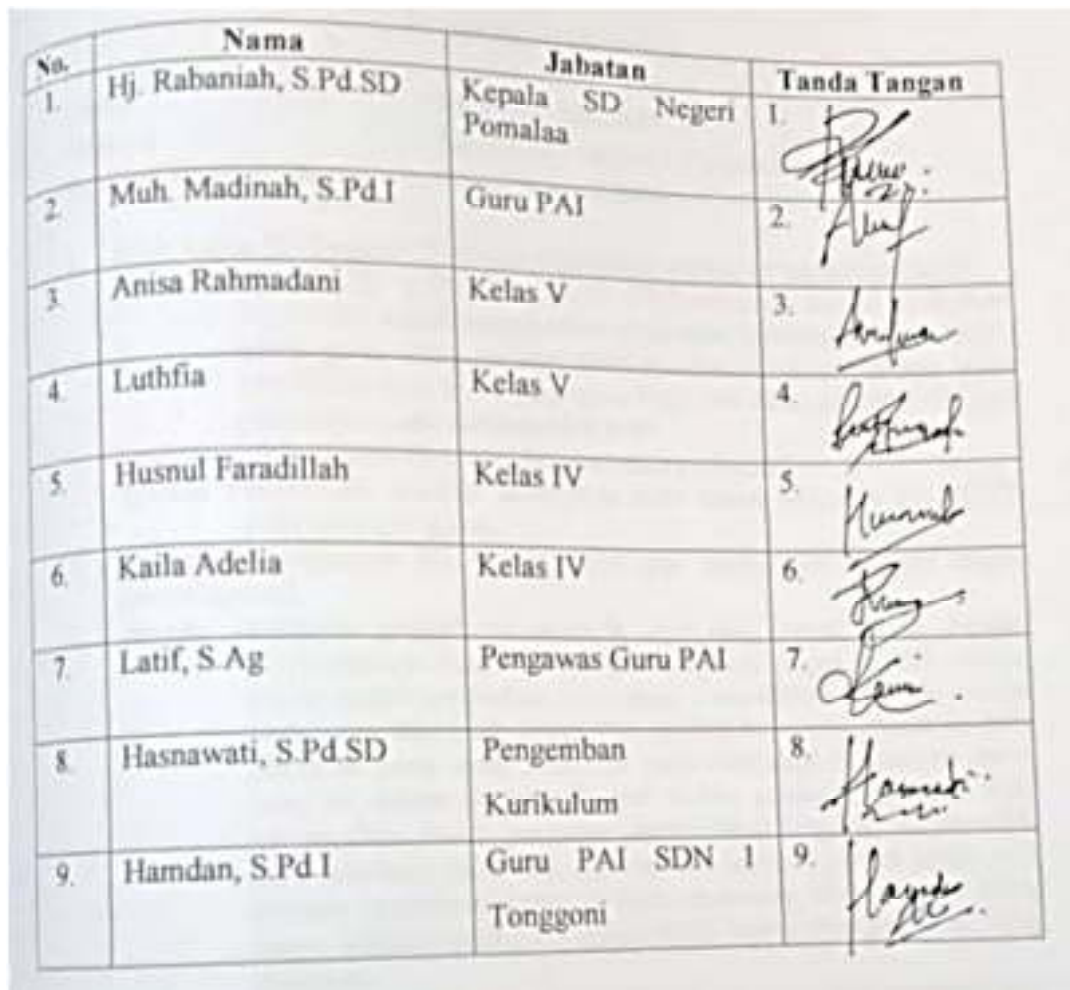 No. Nama Jabatan Tanda Tangan
1. Hj. Rabaniah, S.Pd.SD Kepala SD Negeri 1.
Pomalaa
2. Muh. Madinah, S.Pd.I Guru PAI 2.
3. Anisa Rahmadani Kelas V 3.
4. Luthfia Kelas V 4.
5. Husnul Faradillah Kelas IV 5.
6. Kaila Adelia Kelas IV 6.
7. Latif, S.Ag Pengawas Guru PAI 7.
8. Hasnawati, S.Pd.SD Pengemban 8.
Kurikulum
9. Hamdan, S.Pd.I Guru PAI SDN 1 9.
Tonggoni